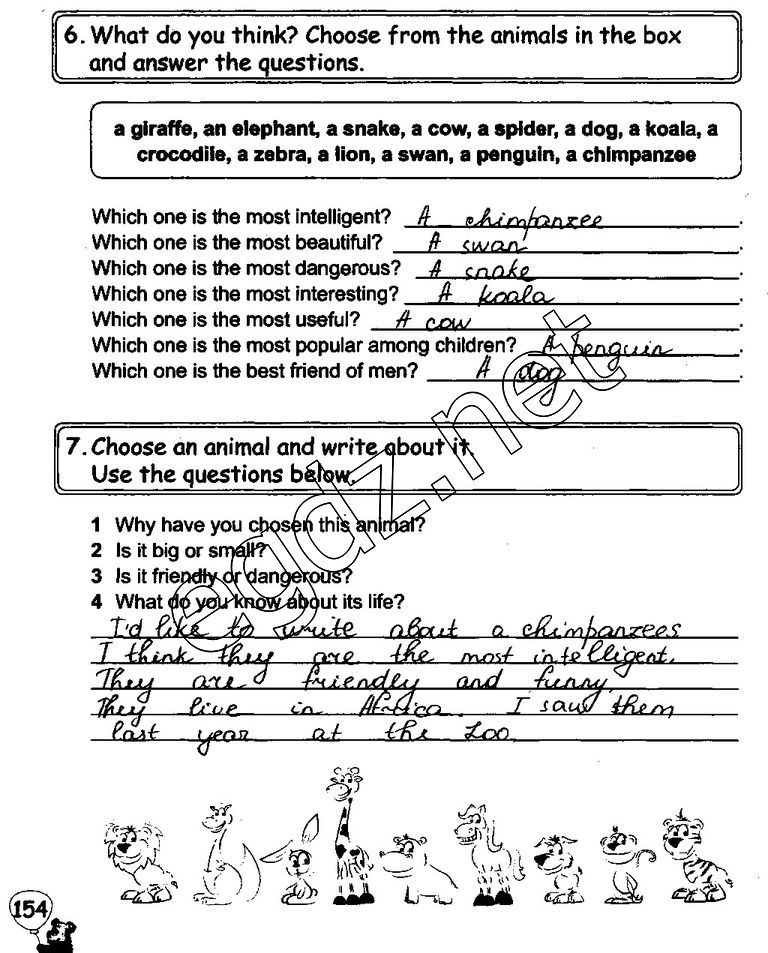 6. What do you think? Choose from the animals in the box
and answer the questions.
a giraffe, an elephant, a snake, a cow, a spider, a dog, a koala, a
crocodile, a zebra, a lion, a swan, a penguin, a chimpanzee
Which one is the most intelligent? A chimpanzee.
Which one is the most beautiful? A swan.
Which one is the most dangerous? A snake.
Which one is the most interesting? A koala.
Which one is the most useful? A cow.
Which one is the most popular among children? A penguin.
Which one is the best friend of men? A dog.
7. Choose an animal and write about it.
Use the questions below.
1 Why have you chosen this animal?
2 Is it big or small?
3 Is it friendly or dangerous?
4 What do you know about its life?
I'd like to write about a chimpanzees
I think they are the most intelligent.
They are friendly and funny.
They live in Africa. I saw them
last year at the Zoo
154
egdz.net